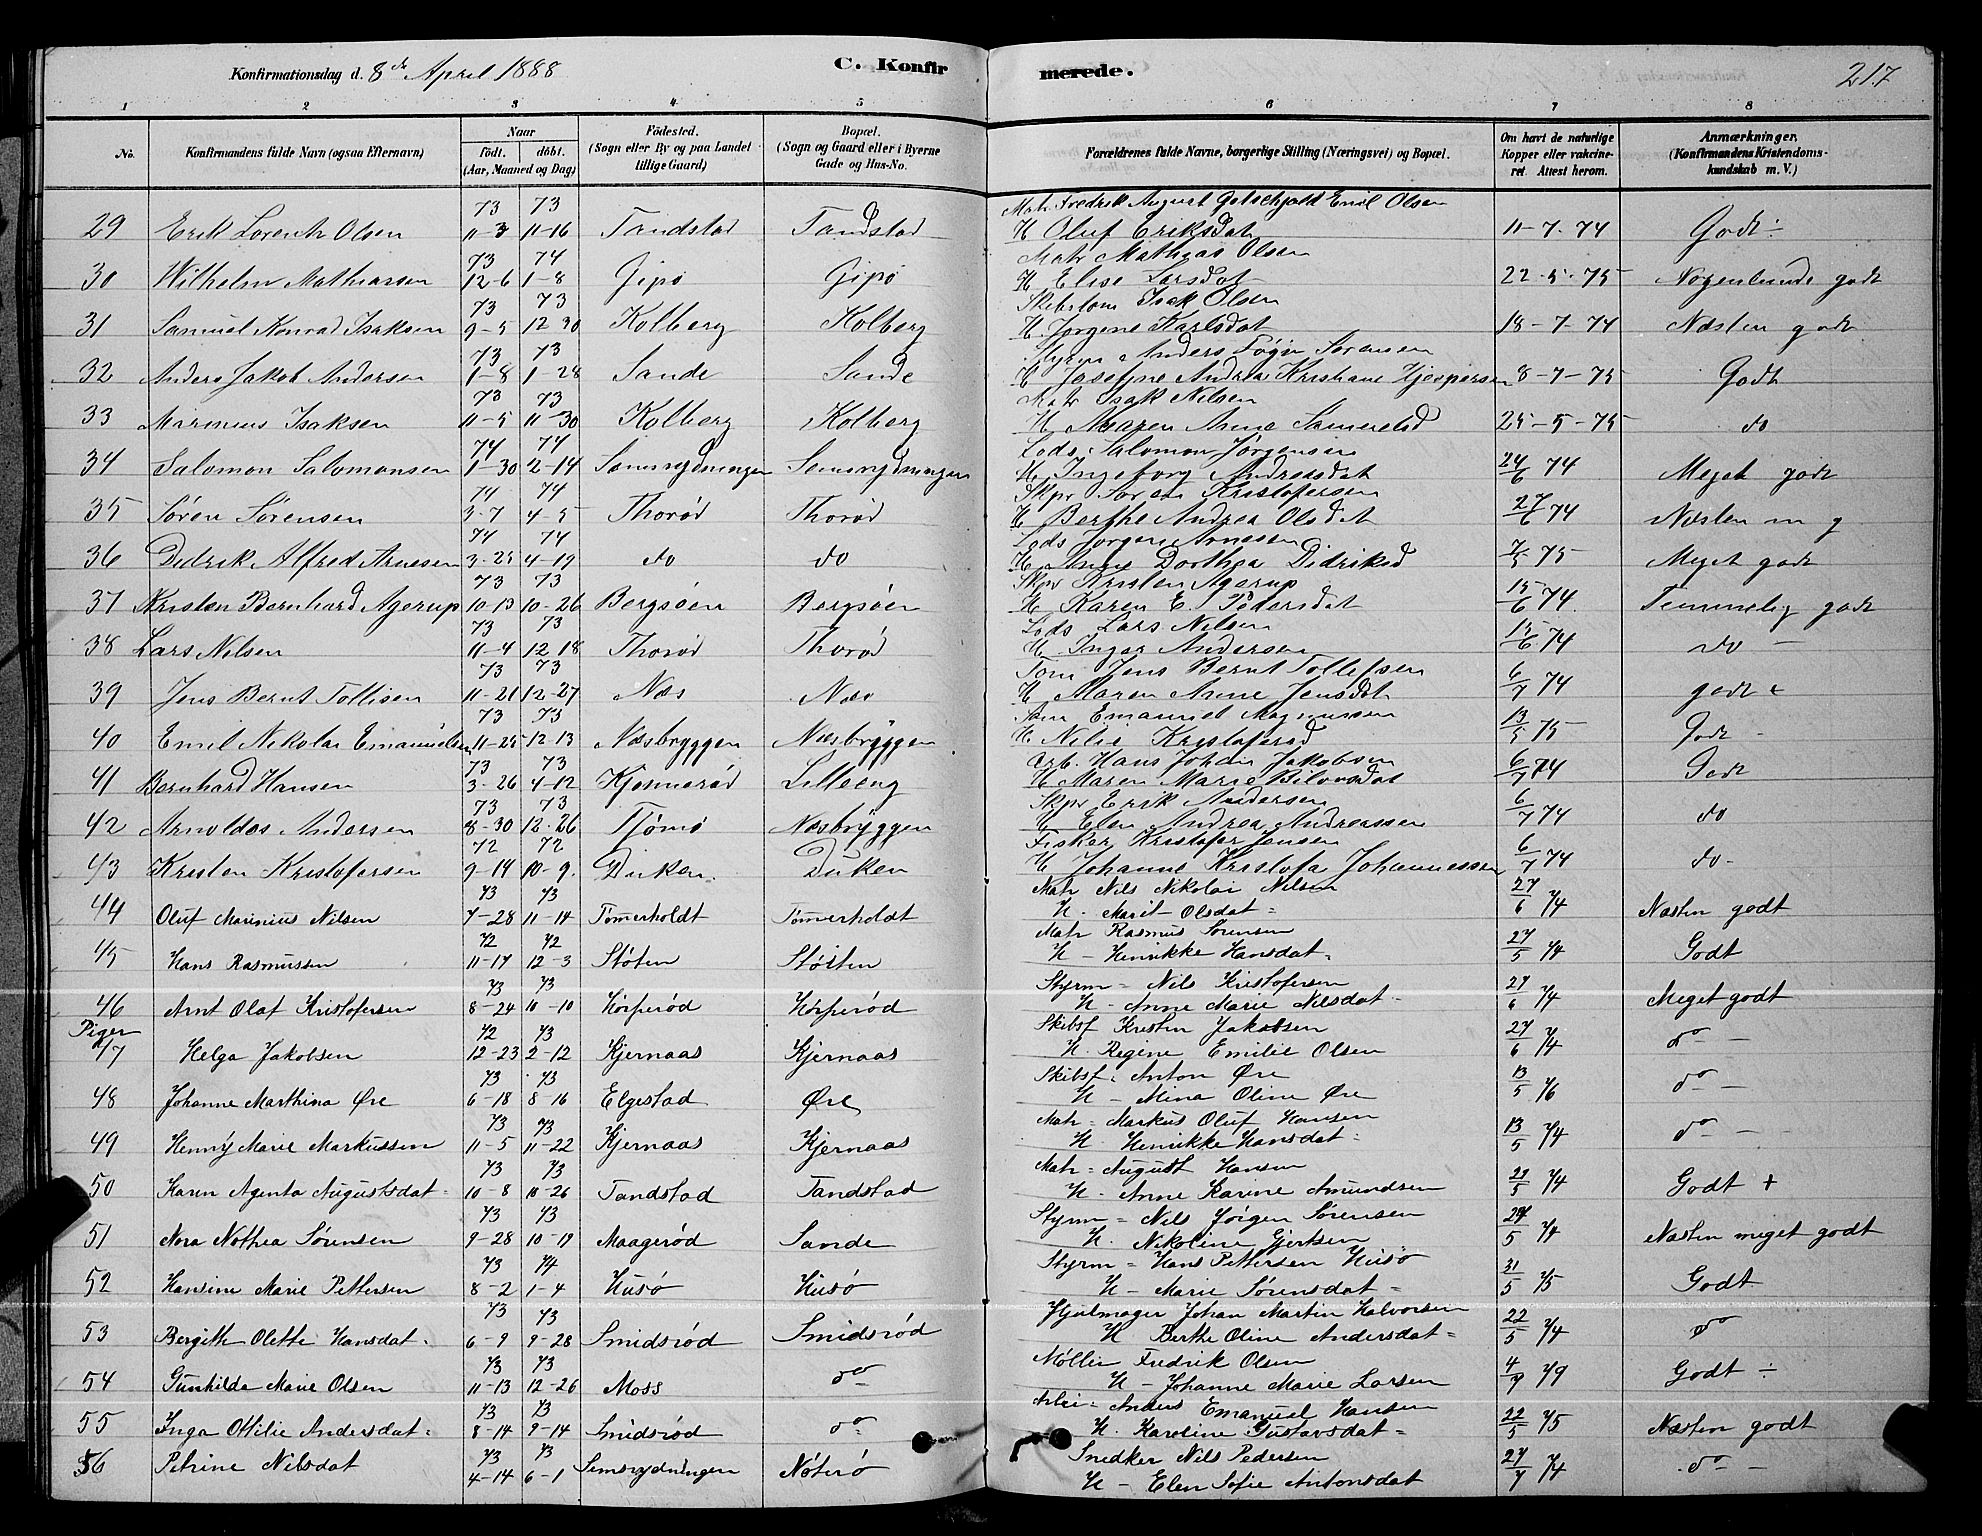 Konfirmationsdag d. 8de April 1888
C. Konfirmerede.
217
1 2 3 4 5 6 7 8
No.
Konfirmandens fulde Navn (ogsaa Efternavn)
Naar
født. døbt.
(Aar, Maaned og Dag)
Fødested.
(Sogn eller By og paa Landet tillige Gaard)
Bopæl.
(Sogn og Gaard eller i Byerne Gade og Hus-No.
Forældrenes fulde Navne, borgerlige Stilling (Næringsvei) og Bopæl.
Om havt de naturlige Kopper eller vakcineret. Attest herom.
Anmærkninger.
(Konfirmandens Kristendomskundskab m. V.)
73 73 Matr Fredrik August Emil Olsen
29 Erik Lorentz Olsen 11-3 11-16 Tandstad Tandstad H Oluf Eriksdat 11-7-74 Godt ÷
73 74 Matr Mathias Olsen
30 Wilhelm Mathiasen 12-6 1-8 Gipø Gipø H Elise Larsdat 22-5-75 Nogenlunde godt
73 73 Skibstøm Isak Olsen
31 Samuel Konrad Isaksen 9-5 12 30 Kolberg Kolberg H Jørgine Karlsdat 18-7-74 Næsten godt
73 73 Styrm Anders Føyn Sørensen
32 Anders Jakob Andersen 1-8 1-28 Sande Sande H Josefine Andrea Kristiane Hjespersen 8-7-75 Godt
73 73 Matr Isak Nilsen
33 Marinius Isaksen 11-5 11-30 Kolberg Kolberg H Maren Anne Samuelsd 25-5-75 do
74 74 Lods Salomon Jørgensen
34 Salomon Salomonsen 1-30 2-14 Semsrydningen Semsrydningen H Ingeborg Andreasdat 24/6 74 Meget godt
74 74 Skpr Søren Kristofersen
35 Søren Sørensen 3-7 4-5 Thorød Thorød H Berthe Andrea Olsdat 27/6 74 Næsten m g
74 74 Lods Jørgen Arnesen
36 Didrik Alfred Arnesen 3-25 4-19 do do H Anne Dorthea Didriksd 7/5 75 Meget godt
73 73 Skpr Kristen Agerup
37 Kristen Bernhard Agerup 10-13 10-26 Bergsøen Bergsøen H Karen E. Pedersdat 15/6 74 Temmelig godt
73 73 Lods Lars Nilsen
38 Lars Nilsen 11-4 12 18 Thorød Thorød H Inger Andersen 15/6 74 do -
73 73 Tøm Jens Bernt Tollefsen
39 Jens Bernt Tollisen 11-21 12-27 Næs Næs H Maren Anne Jensdat 6/7 74 godt +
73 73 Søm Emanuel Magnussen
40 Emil Nikolai Emanuelsen 11-25 12 13 Næsbryggen Næsbryggen H Nilie Kristofersd 13/5 75 Godt -
73 73 Arb. Hans Johan Jakobsen
41 Bernhard Hansen 3-26 4-12 Kjønnerød Lilleeng H Maren Marie 6/7 74 Godt
73 73 Skpr Erik Andersen
42 Arnoldus Andersen 8-30 12-26 Tjømø Næsbryggen H Elen Andrea Andreassen 6/7 74 do
72 72 Fisker Kristofer Jensen
43 Kristen Kristofersen 9-14 10-9. Duken Duken H Johanne Kristofa Johannessen 6/7 74 do-
73 73 Matr Nils Nikolai Nilsen
44 Oluf Marinius Nilsen 7-28 11-14 Tømerholdt Tømerholdt H. Marit Olsdat = 27/6 74 Næsten godt
72 72 Matr Rasmus Sørensen
45 Hans Rasmussen 11-17 12-3 Støten Støiten H - Henrikke Hansdat = 27/5 74 Godt
73 73 Styrm = Nils Kristofersen
46 Arnt Olaf Kristofersen 8-24 10-10 Hørperød Hørperød H - Anne Marie Nilsdat - 27/6 74 Meget godt
Piger 72 73 Skibsf Kristen Jakobsen
47 Helga Jakobsen 12-23 2-12 Kjernaas Kjernaas H. Regine Emilie Olsen 27/6 74 do -
73 73 Skibsf. Anton Øre
48 Johanne Marthina Øre 6-18 8-16 Elgestad Øre H - Mina Oline Øre 13/5 76 do -
73 73 Matr = Markus Oluf Hansen
49 Henny Marie Markussen 11-5 11-22 Kjernaas Kjernaas H. Henrikke Hansdat = 13/5 74 do -
73 73 Matr = August Hansen
50 Karen Agenta Augustsdat - 10-8 10-26 Tandstad Tandstad H. Anne Karine Amundsen 22/5 74 Godt +
73 73 Styrm = Nils Jørgen Sørensen
51 Nora Nothea Sørensen 9-28 10-19 Maagerød Sande H. Nikoline Gjertsen 27/5 74 Næsten meget godt
73 74 Styrm = Hans Pettersen Husø
52 Hansine Marie Pettersen 8-2 1-4 Husø Husø H - Marie Sørensdat = 31/5 75 Godt
73 73 Hjulmager Johan Martin Halvorsen
53 Bergith Olette Hansdat - 6-9 9-28 Smidsrød Smidsrød H Berthe Oline Andersdat = 22/5 74 do
73 73 Møller Fredrik Olsen
54 Gunhilda Marie Olsen 11-13 12-26 Moss do H - Johanne Marie Larsen 4/7 79 Godt ÷
73 73 Arbei- Anders Emanuel Hansen
55 Inga Ottilie Andersdat = 8-14 9-14 Smidsrød do H. Karoline Gustavsdat = 22/5 75 Næsten godt
73 73 Snedker Nils Pedersen
56 Petrine Nilsdat 4-14 6-1 Semsrydningen Nøterø H - Elen Sofie Antonsdat 27/7 74 do -